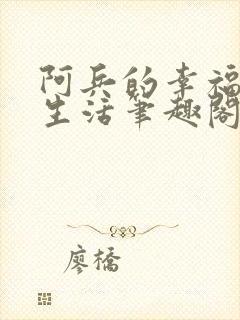 阿兵的幸福
生活筆趣閣
廖橋